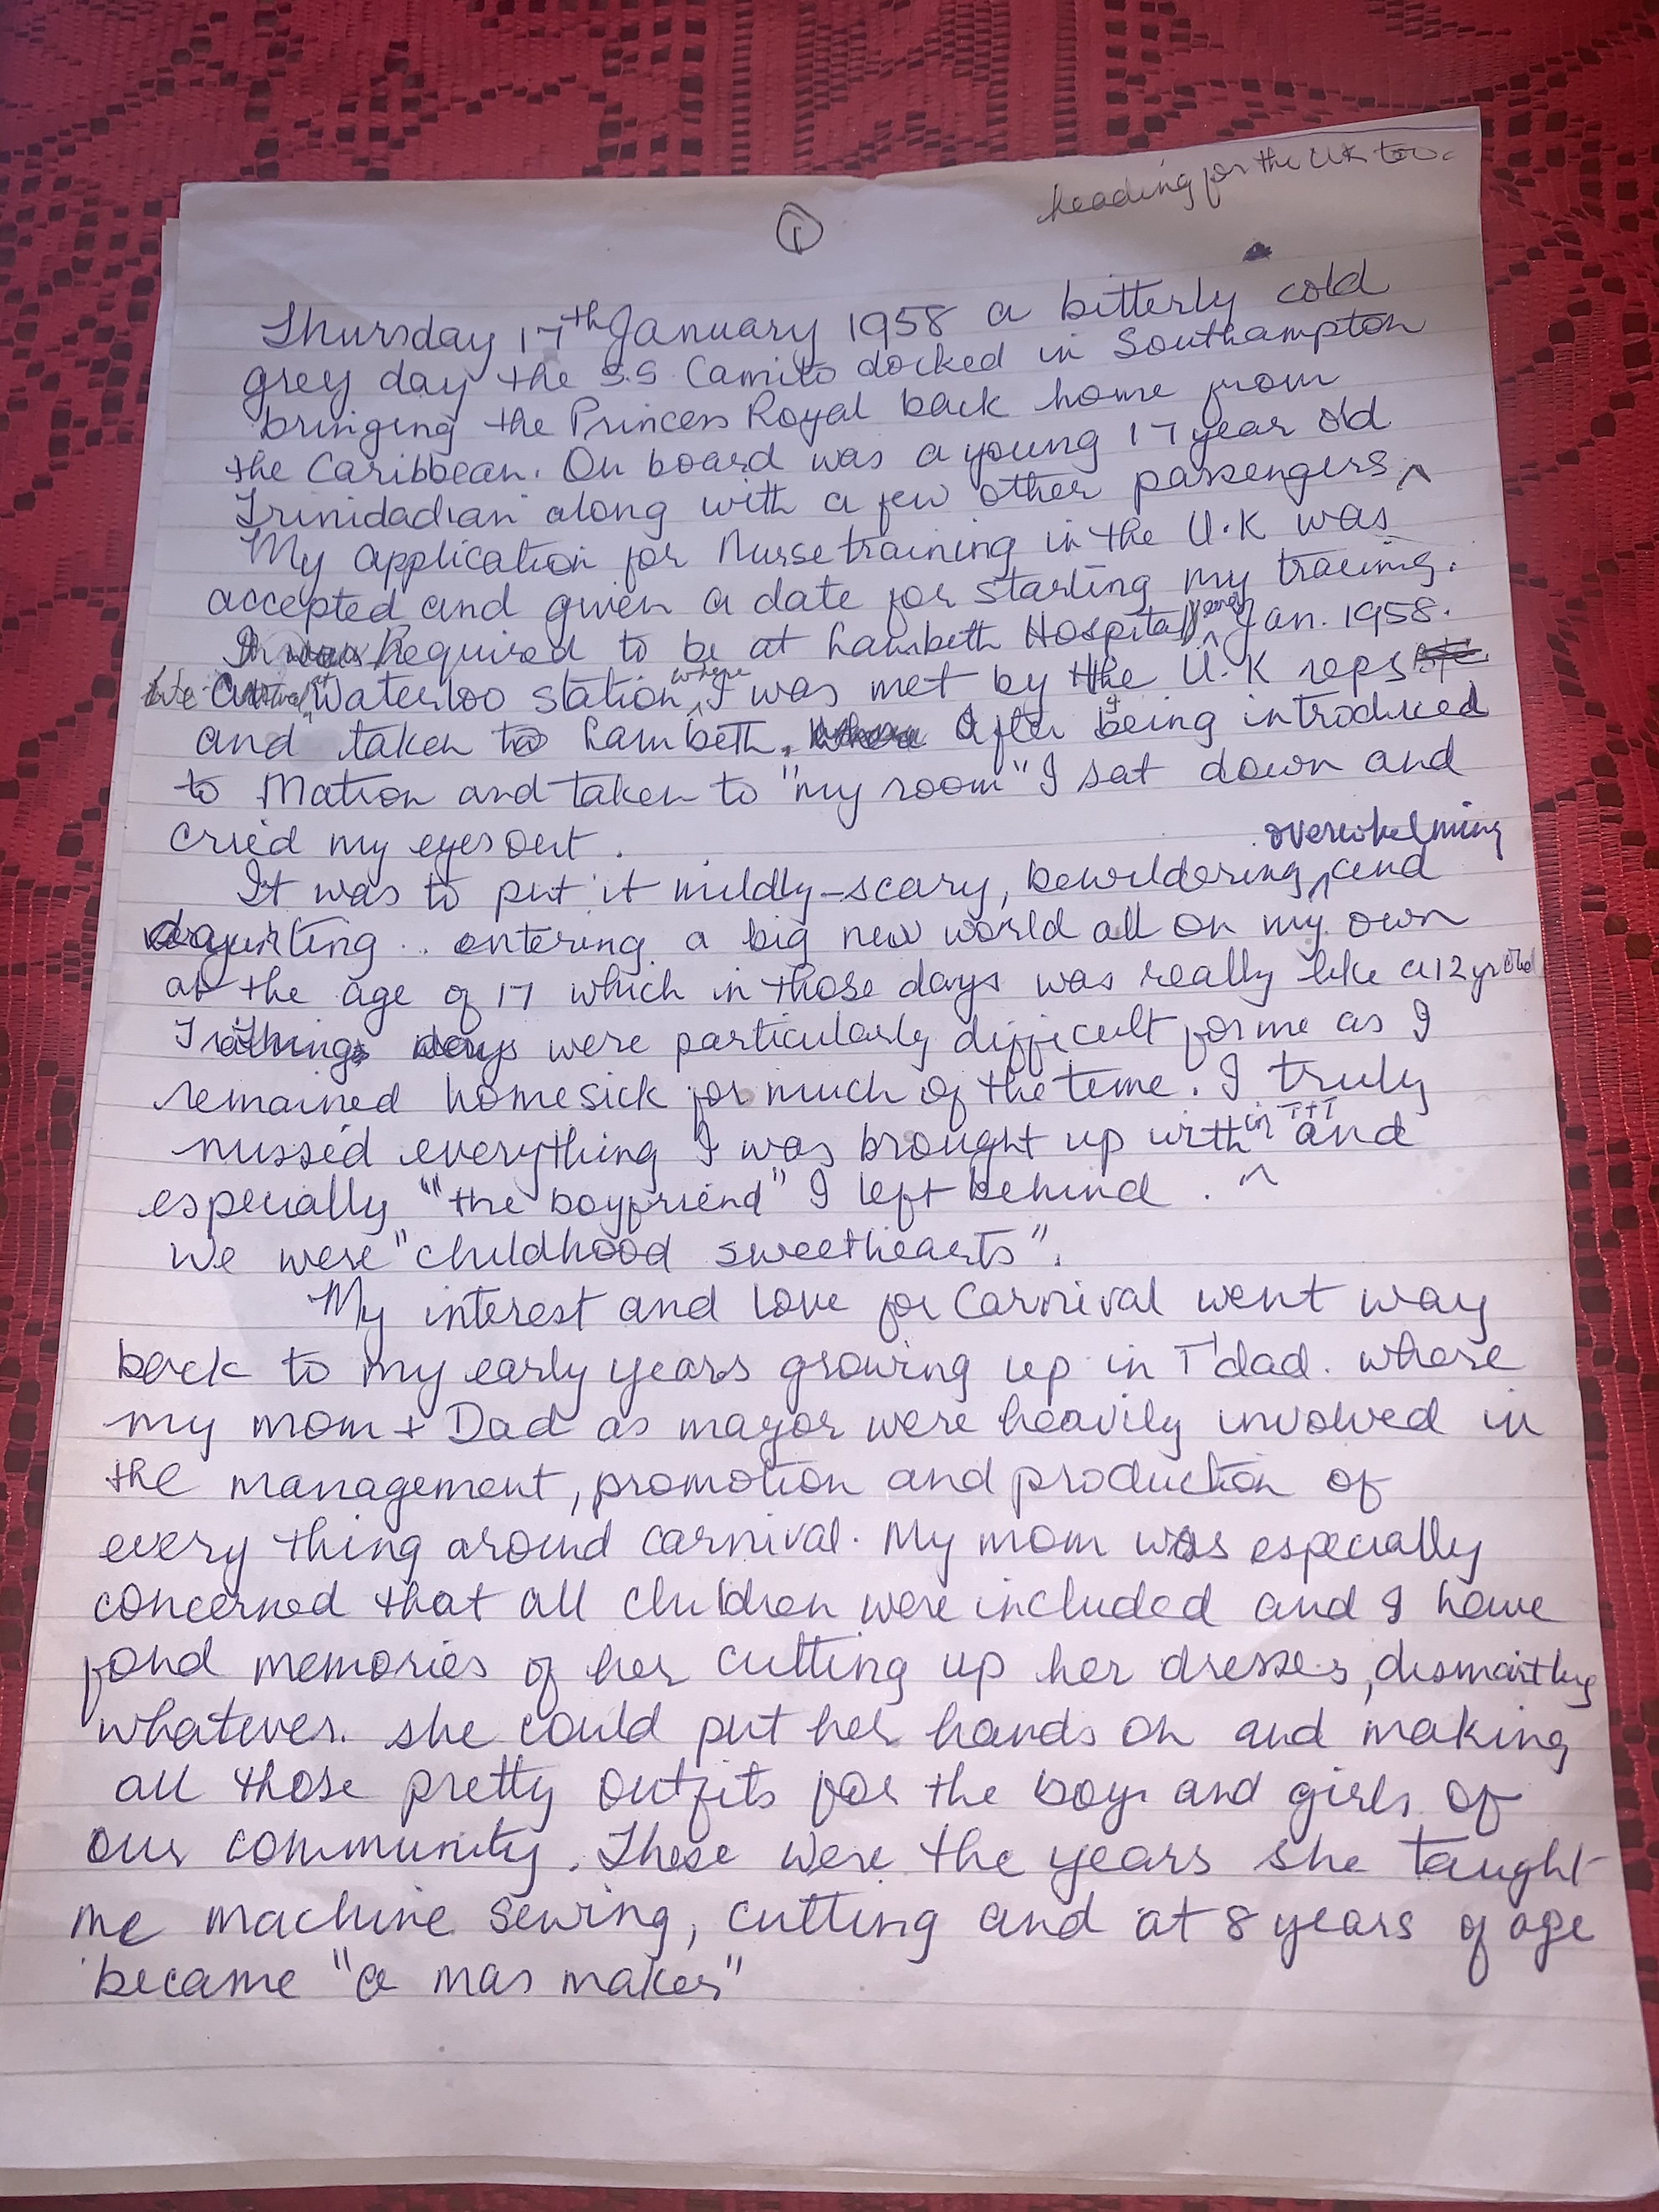 heading for the UK too.
1
Thursday 17th January 1958 a bitterly cold
grey day the S.S Camito docked in Southampton
bringing the Princess Royal back home from
the Caribbean. On board was a young 17 year old
Trinidadian along with a few other passengers ^
My application for Nurse training in the U.K was
accepted and given a date for starting my tracinig.
Required to be at Lambeth Hospital Jan. 1958.
at Waterloo station where I was met by the U.K reps
and taken to Lambeth. After being introduced
to Matron and taken to "my room" I sat down and
cried my eyes out.
It was to put it mildly-scary, bewildering, overwhelming and
daunting .. entering a big new world all on my own
at the age of 17 which in those days was really like a 12 yr old
Training days were particularly difficult for me as I
remained homesick for much of the time. I truly
missed everything I was brought up with in T+T and
especially "the boyfriend" I left behind.
We were "childhood sweethearts".
My interest and love for Carnival went way
back to my early years growing up in T'dad. where
my mom + Dad as mayor were heavily involved in
the management, promotion and production of
every thing around carnival. My mom was especially
concerned that all children were included and I have
fond memories of her cutting up her dresses, dismantling
whatever. she could put her hands on and making
all those pretty outfits for the boys and girls of
our community. These were the years she taught
me machine sewing, cutting and at 8 years of age
became "a mas maker"